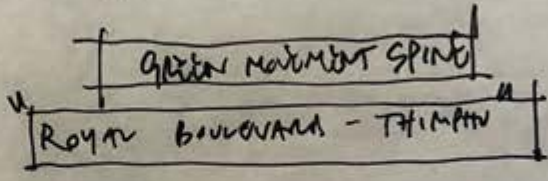 GREEN MOVEMENT SPINE
"ROYAL BOULEVARD - THIMPHU"